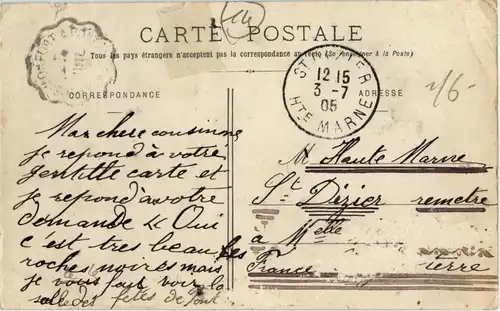 CARTE POSTALE
Tous les pays étrangers n'acceptent pas la correspondance au recto (Se renseigner à la Poste)
CORRESPONDANCE
ADRESSE
12 15
3-7
05
HTE MARNE
2/6
Ma chere cousine
je repond à votre
gentitte carte et
je repond a votre
demande « Oui
c est tres beau les
roches noires mais
je vous fais voir la
salle des fetes de Pont
M Haute Marne
St Dézier remetre
a Melle
France ierre